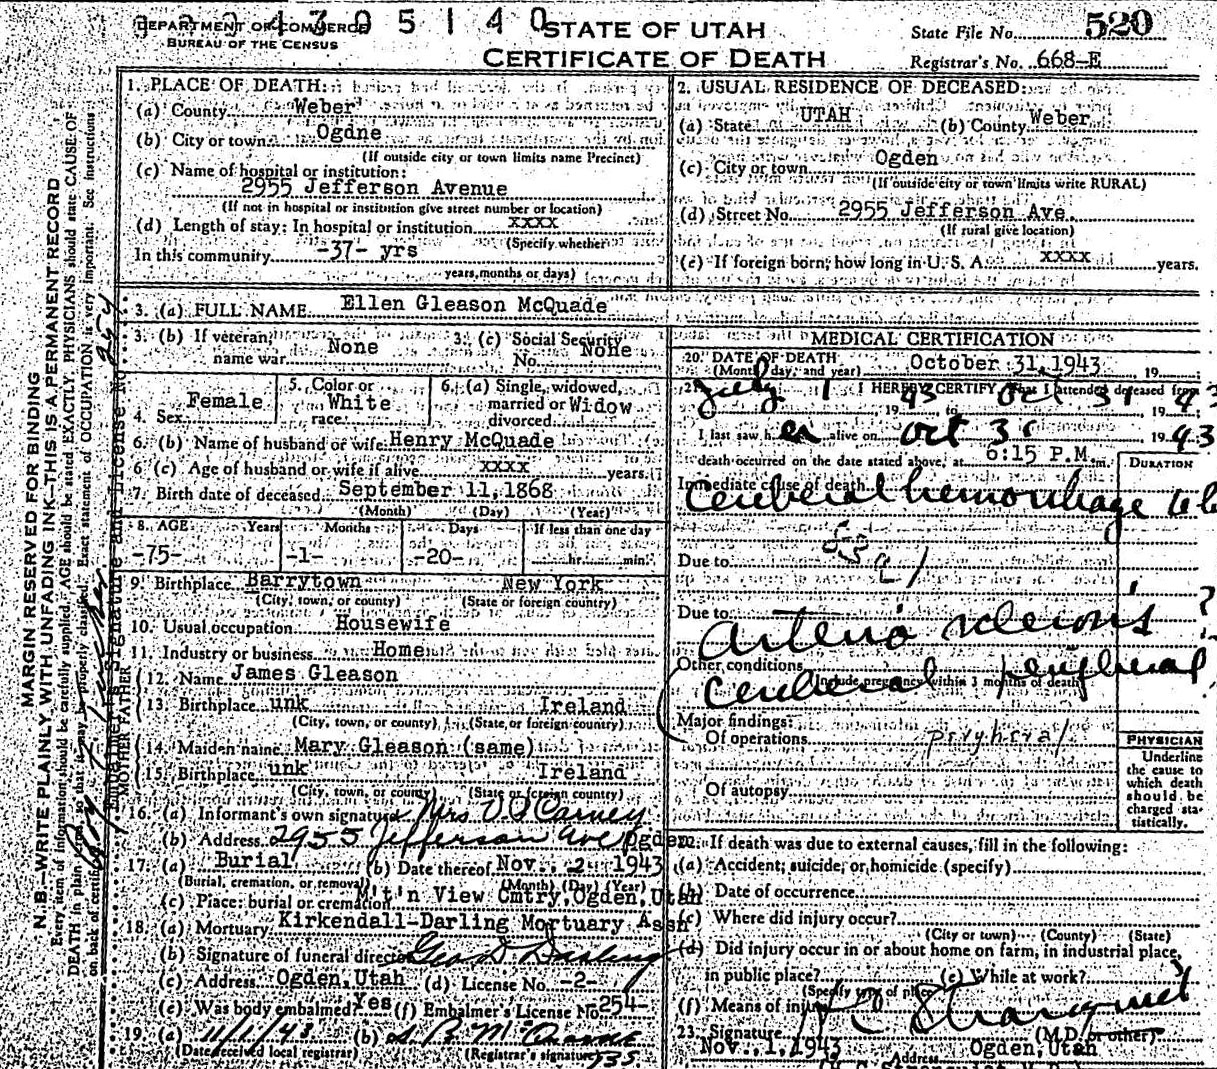 DEPARTMENT OF COMMERCE
BUREAU OF THE CENSUS
4305140
STATE OF UTAH
CERTIFICATE OF DEATH
State File No. 520
Registrar's No. 668-E
MARGIN RESERVED FOR BINDING
N. B.—WRITE PLAINLY WITH UNFADING INK—THIS IS A PERMANENT RECORD
Every item of information should be carefully supplied. AGE should be stated EXACTLY. PHYSICIANS should state CAUSE OF
DEATH in plain so that it may be properly classified. Exact statement of OCCUPATION is very important. See instructions
on back of certificate.
Embalmer's Signature and License No. 254
1. PLACE OF DEATH:
(a) County Weber
(b) City or town Ogdne
(If outside city or town limits name Precinct)
(c) Name of hospital or institution:
2955 Jefferson Avenue
(If not in hospital or institution give street number or location)
(d) Length of stay: In hospital or institution xxxx
(Specify whether
In this community -37- yrs
years, months or days)
2. USUAL RESIDENCE OF DECEASED:
(a) State UTAH (b) County Weber
(c) City or town Ogden
(If outside city or town limits write RURAL)
(d) Street No. 2955 Jefferson Ave.
(If rural give location)
(e) If foreign born; how long in U. S. A. xxxx years.
3. (a) FULL NAME Ellen Gleason McQuade
3. (b) If veteran, name war None
3. (c) Social Security No. None
4. Sex Female
5. Color or race White
6. (a) Single, widowed, married or divorced Widow
6. (b) Name of husband or wife Henry McQuade
6 (c) Age of husband or wife if alive xxxx years.
7. Birth date of deceased September 11, 1868
(Month) (Day) (Year)
8. AGE Years Months Days If less than one day
-75- -1- -20- hr. min.
9. Birthplace Barrytown New York
(City, town, or county) (State or foreign country)
10. Usual occupation Housewife
11. Industry or business Home
FATHER
12. Name James Gleason
13. Birthplace unk Ireland
(City, town, or county) (State or foreign country)
MOTHER
14. Maiden name Mary Gleason (same)
15. Birthplace unk Ireland
(City, town, or county) (State or foreign country)
16. (a) Informant's own signature Mrs Carney
(b) Address 2955 Jefferson Ave Ogden
17. (a) Burial (b) Date thereof Nov. 2 1943
(Burial, cremation, or removal) (Month) (Day) (Year)
(c) Place: burial or cremation M't'n View Cmtry, Ogden, Utah
18. (a) Mortuary Kirkendall-Darling Mortuary Assn
(b) Signature of funeral director Geo D. Darling
(c) Address Ogden, Utah (d) License No. -2-
(e) Was body embalmed? Yes (f) Embalmer's License No. 254-
19. (a) 11/1/43 (b)
(Date received local registrar) (Registrar's signature)
MEDICAL CERTIFICATION
20. DATE OF DEATH October 31, 1943 19
(Month, day, and year)
21. I HEREBY CERTIFY, That I attended deceased from
July 1 1943 to Oct 31 1943
I last saw her alive on Oct 31, 1943
death occurred on the date stated above, at 6:15 P.M. m.
DURATION
Immediate cause of death
Cerebral hemorrhage
83a1
Due to
Due to Arterio sclerosis ?
Other conditions Cerebral peripheral
(Include pregnancy within 3 months of death)
Major findings:
Of operations
Of autopsy
PHYSICIAN
Underline
the cause to
which death
should be
charged sta-
tistically.
22. If death was due to external causes, fill in the following:
(a) Accident, suicide, or homicide (specify)
(b) Date of occurrence
(c) Where did injury occur?
(City or town) (County) (State)
(d) Did injury occur in or about home on farm, in industrial place,
in public place? (e) While at work?
(Specify type of place)
(f) Means of injury
23. Signature (M.D. or other)
Nov. 1, 1943 Address Ogden, Utah